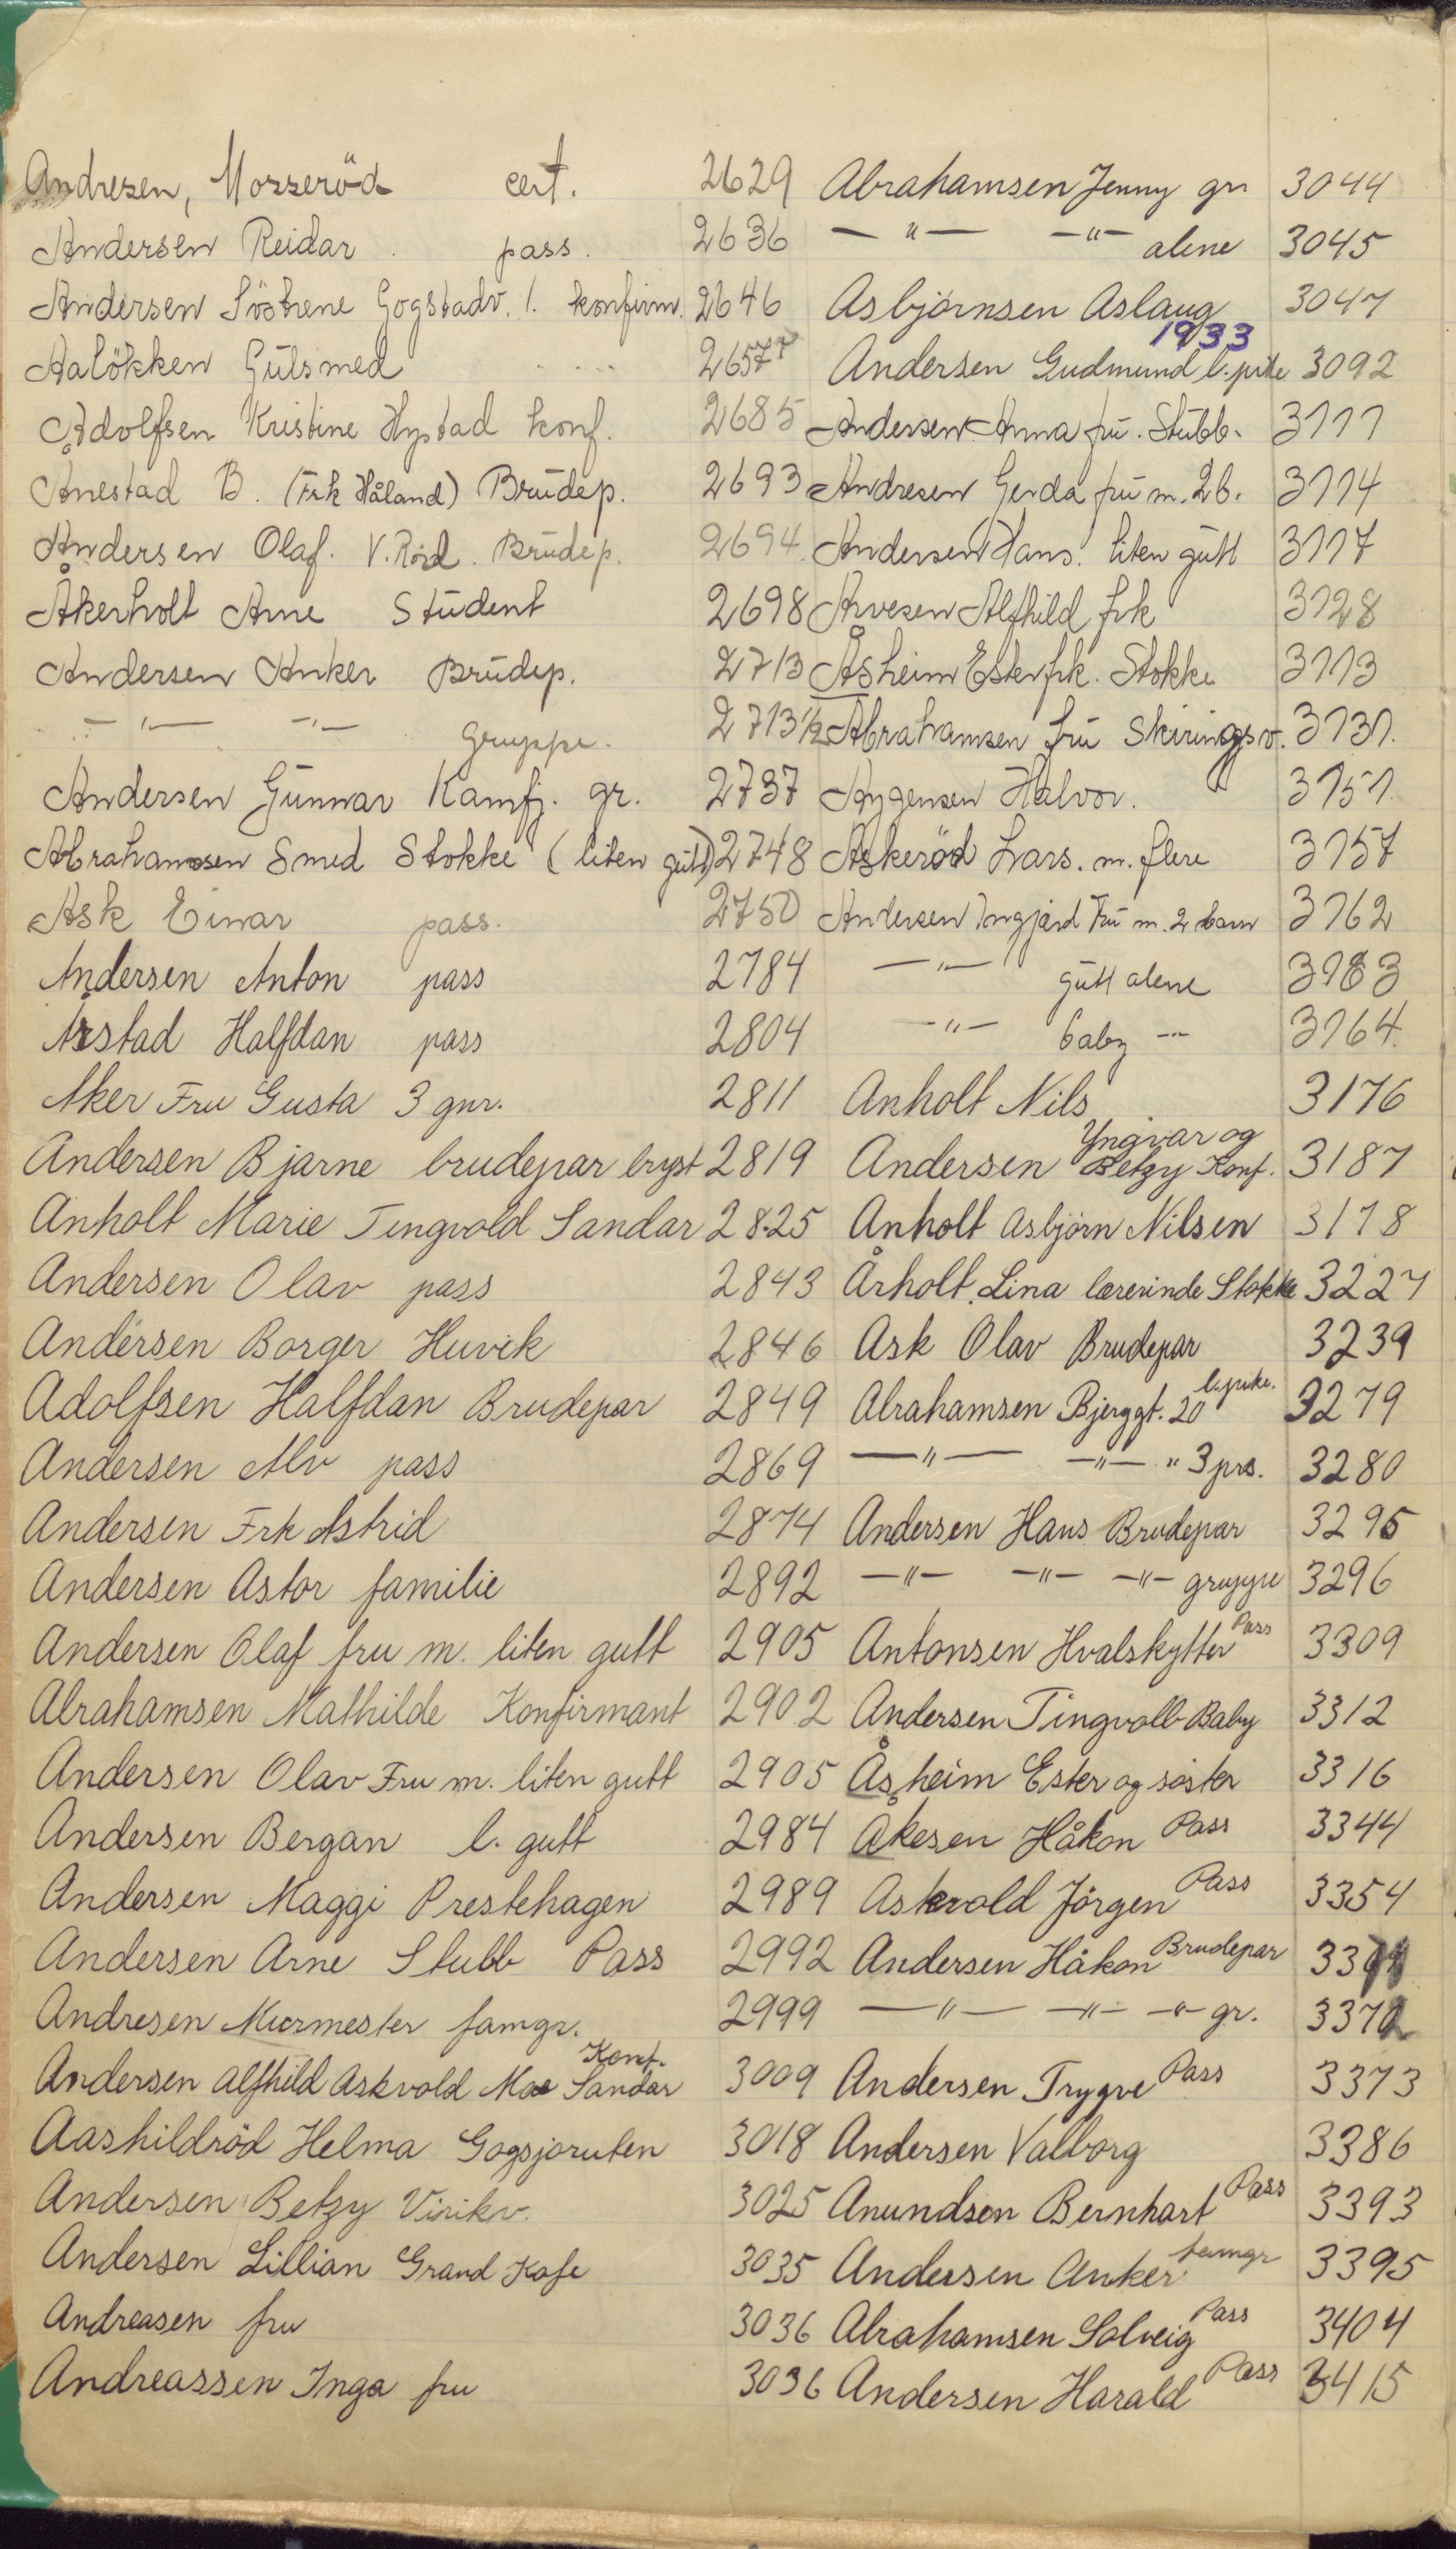 Andresen, Mosseröd cert. 2629
Andersen Reidar pass. 2636
Andersen Söstrene Gogstadv. 1. konfirm. 2646
Aalökken Gulsmed 2657
Adolfsen Kristine Hystad konf. 2685
Anestad B. (Frk Håland) Brudep. 2693
Andersen Olaf. V. Röd. Brudep. 2694
Åkerholt Arne Student 2698
Andersen Anker Brudep. 2713
— " — — " — Gruppe. 2713 1/2
Andersen Gunnar Kamfj. gr. 2737
Abrahamsen Smed Stokke (liten gutt) 2748
Ask Einar pass. 2750
Andersen Anton pass 2784
Årstad Halfdan pass 2804
Aker Fru Gusta 3 gnr. 2811
Andersen Bjarne brudepar bryst 2819
Anholt Marie Tingvold Sandar 2825
Andersen Olav pass 2843
Andersen Borger Huvik 2846
Adolfsen Halfdan Brudepar 2849
Andersen Alv pass 2869
Andersen Frk Astrid 2874
Andersen Astor familie 2892
Andersen Olaf fru m. liten gutt 2905
Abrahamsen Mathilde Konfirmant 2902
Andersen Olav Fru m. liten gutt 2905
Andersen Bergan l. gutt 2984
Andersen Maggi Prestehagen 2989
Andersen Arne Stubb Pass 2992
Andresen Murmester famgr. 2999
Andersen Alfhild Askvold Moe Sandar Konf. 3009
Aashildröd Helma Gogsjoruten 3018
Andersen Betzy Virikv. 3025
Andersen Lillian Grand Kafe 3035
Andreasen fru 3036
Andreassen Inga fru 3036
Abrahamsen Jenny gr. 3044
— " — — " — alene 3045
Asbjørnsen Aslaug 3047
1933
Andersen Gudmund l. pike 3092
Andersen Anna fru. Stubb. 3111
Andresen Gerda fru m. 2 b. 3114
Andersen Hans. liten gutt 3117
Arvesen Alfhild frk 3128
Åsheim Ester frk. Stokke 3113
Abrahamsen fru Skiringsv. 3131.
Aygensen Halvor. 3151.
Askeröd Lars. m. flere 3157
Andersen Ingjerd Fru m. 2 barn 3162
— " — gutt alene 3163
— " — baby — " — 3164.
Anholt Nils 3176
Andersen Yngvar og Betzy Konf. 3187
Anholt Asbjørn Nilsen 3178
Årholt Lina lærerinde Stokke 3227
Ask Olav Brudepar 3239
Abrahamsen Bjerggt. 20 l. pike. 3279
— " — — " — " 3 prs. 3280
Andersen Hans Brudepar 3295
— " — — " — — " — gruppe 3296
Antonsen Hvalskytter Pass 3309
Andersen Tingvoll Baby 3312
Åsheim Ester og søster 3316
Åkesen Håkon Pass 3344
Askvold Jörgen Pass 3354
Andersen Håkon Brudepar 3371
— " — — " — — " — gr. 3372
Andersen Trygve Pass 3373
Andersen Valborg 3386
Anundsen Bernhart Pass 3393
Andersen Anker famgr 3395
Abrahamsen Solveig Pass 3404
Andersen Harald Pass 3415